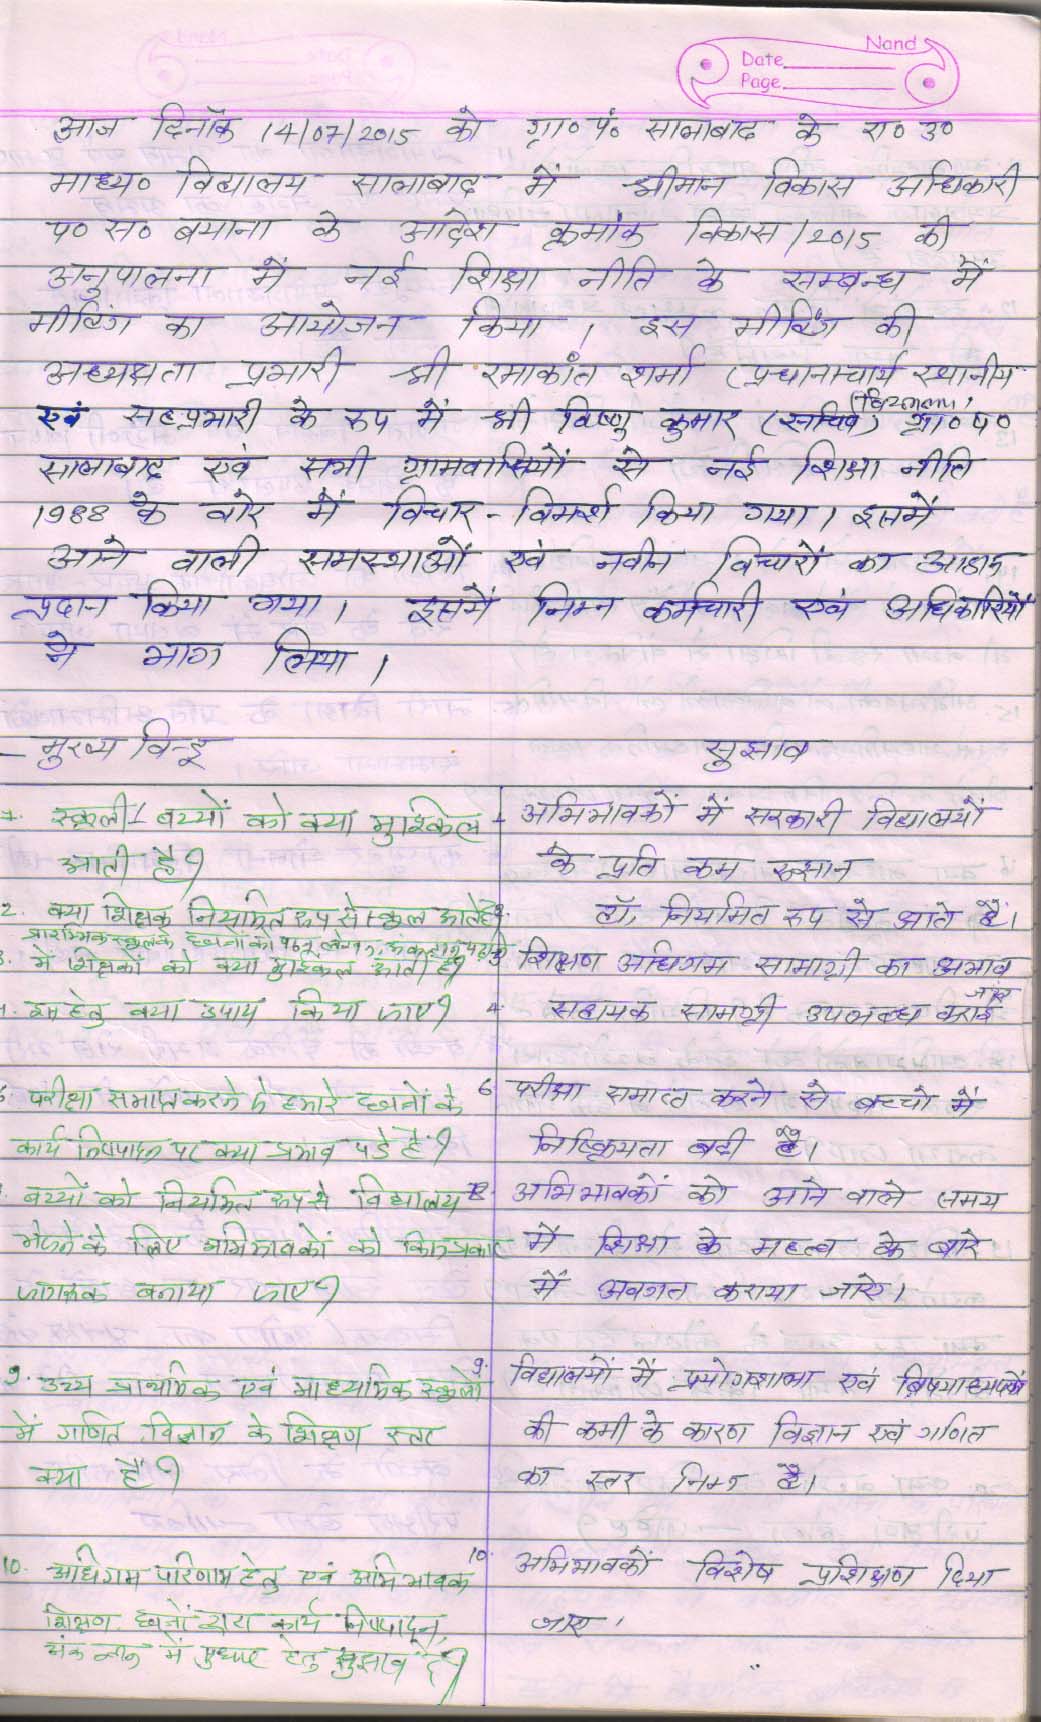 Nand
Date
Page
आज दिनाँक 14/07/2015 को ग्रा० पं० सालाबाद के रा० उ०
माध्य० विद्यालय सालाबाद में श्रीमान विकास अधिकारी
प० स० बयाना के आदेश क्रमांक विकास/2015 की
अनुपालना में नई शिक्षा नीति के सम्बन्ध में
मीटिंग का आयोजन किया। इस मीटिंग की
अध्यक्षता प्रभारी श्री रमाकांत शर्मा (प्रधानाचार्य स्थानीय
एवं सहप्रभारी के रूप में श्री विष्णु कुमार (सचिव) ग्रा० प०
सालाबाद एवं सभी ग्रामवासियों से नई शिक्षा नीति
1988 के बारे में विचार-विमर्श किया गया। इसमें
आने वाली समस्थाओं एवं नवीन विचारों का आदान
प्रदान किया गया। इसमें निम्न कर्मचारी एवं अधिकारियों
ने भाग लिया।
मुख्य विन्दू सुझाव
1. स्कूली बच्चों को क्या मुश्किल
आती है?
1 अभिभावकों में सरकारी विद्यालयों
के प्रति कम रुझान
2. क्या शिक्षक नियमित रूप से स्कूल आते है?
2. हॉ, नियमित रूप से आते हैं।
प्रारम्भिक स्कूल के छात्रों को पठन, लेखन, अंकज्ञान पढ़ाने
3. में शिक्षकों को क्या मुश्किल आती है?
3 शिक्षण अधिगम सामाग्री का अभाव
4. इस हेतु क्या उपाय किया जाए?
4. सहायक सामग्री उपलब्ध कराई जाए
6. परीक्षा समाप्त करने से हमारे छात्रों के
कार्य निष्पादन पर क्या प्रभाव पडे है?
6 परीक्षा समाप्त करने से बच्चो में
निष्क्रियता बढी है।
बच्चों को नियमित रूप से विद्यालय
भेजने के लिए अभिभावकों को किस प्रकार
जागरूक बनाया जाए?
8 अभिभावकों को आने वाले समय
में शिक्षा के महत्व के बारे
में अवगत कराया जाये।
9. उच्च प्राथमिक एवं माध्यमिक स्कूलों
में गणित, विज्ञान के शिक्षण स्तर
क्या है?
9. विद्यालयों में प्रयोगशाला एवं बिषयाध्यापकों
की कमी के कारण विज्ञान एवं गणित
का स्तर निम्न है।
10. अधिगम परिणाम हेतु एवं अभिभावक
शिक्षण छात्रों द्वारा कार्य निष्पादन,
में सुधार हेतु सुझाव दें?
10. अभिभावकों विशेष प्रशिक्षण दिया
जाए।